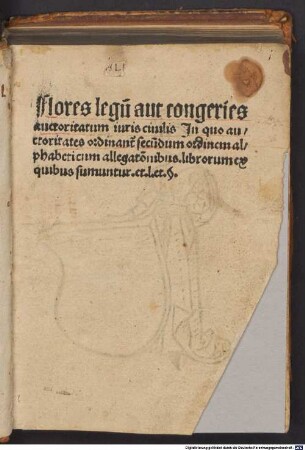 Flores legũ aut congeries
auctoritatum iuris ciuilis In quo au⸗
ctoritates ordinant᷑ secũdum ordinem al⸗
phabeticum allegatõnibus. librorum ex
quibus sumuntur. et. l. et. §.